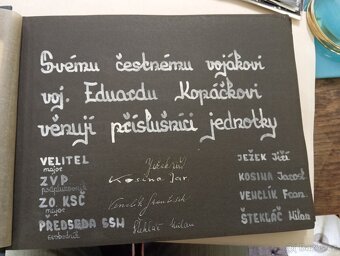 Svému čestnému vojákovi
voj. Eduardu Kopáčkovi
věnují příslušníci jednotky
VELITEL JEŽEK Jiří
major
ZVP Kosina Jar KOSINA Jarosl
podplukovník
Z.O. KSČ Venclík František VENCLÍK Fran.
major
PŘEDSEDA SSM Štekláč Milan ŠTEKLÁČ Milan
svobodník